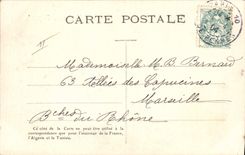 CARTE POSTALE
Mademoiselle M. B. Bernard
63 Allées des Capucines
Marseille
Bches du Rhône
Ce côté de la Carte ne peut être utilisé à la
correspondance que pour l'échange de la France,
l'Algérie et la Tunisie.